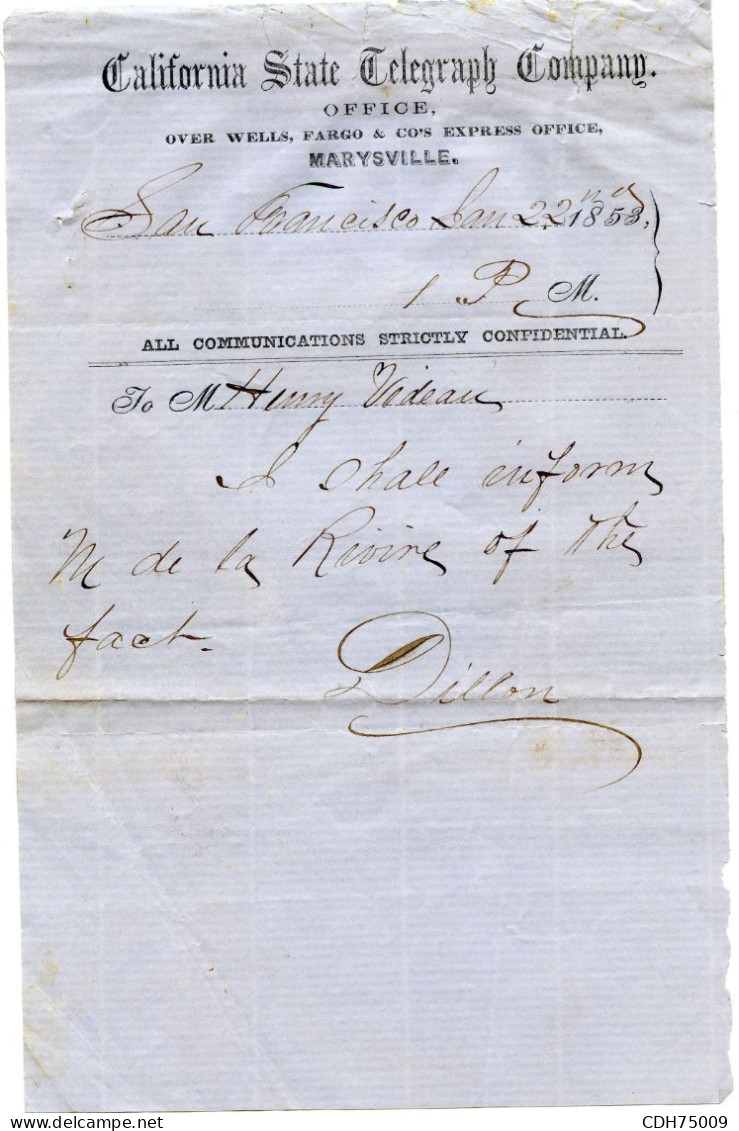 California State Telegraph Company.
OFFICE,
OVER WELLS, FARGO & CO'S EXPRESS OFFICE,
MARYSVILLE.
San Francisco Jan 22nd 1853,
1 P M.
ALL COMMUNICATIONS STRICTLY CONFIDENTIAL.
To M Henry Videau
I shall inform
M de la Rivire of the
fact.
Dillon
CDH75009